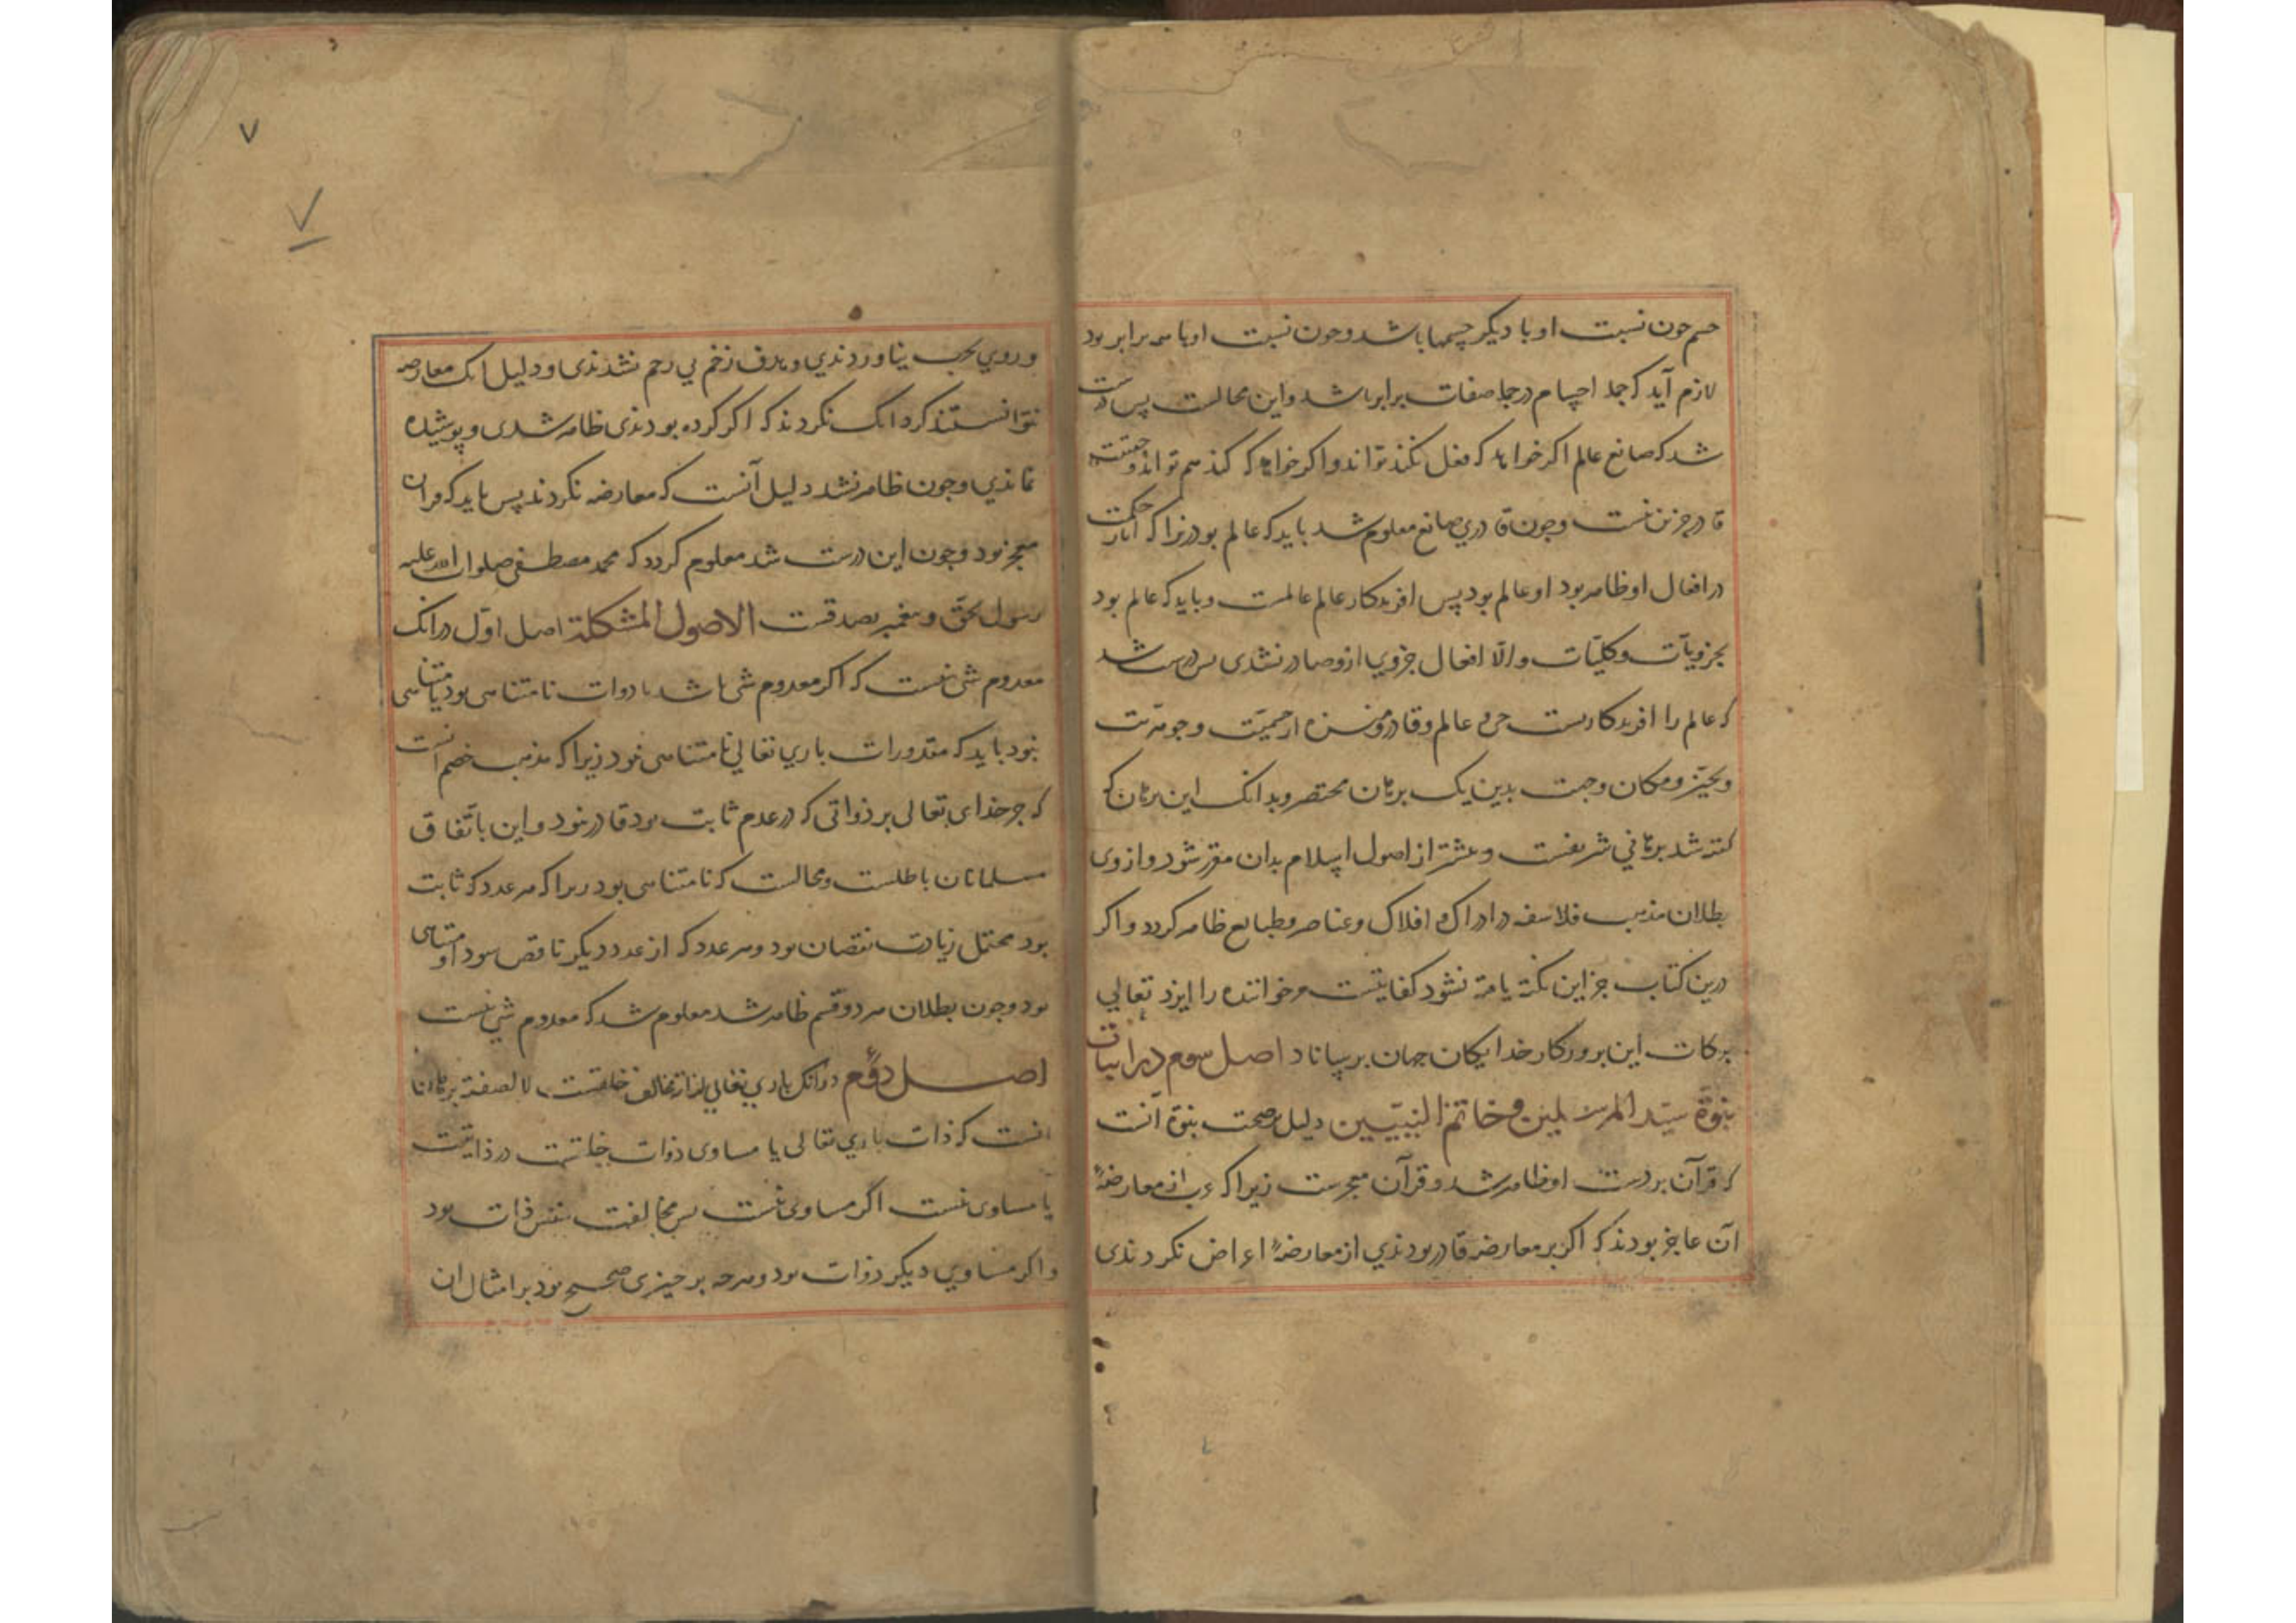 جسم جون نسبت او با دیکر جسمها باشد وجون نسبت او با همه برابر بود
لازم آید که جمله اجسام در جمله صفات برابر باشد واین محالست پس درست
شد که صانع عالم اکر خواهد که فعل نکند تواند واکر خواهد که کند هم تواند وحقیقت
قادر جزین نیست وجون قادری صانع معلوم شد باید که عالم بود زیرا که آثار حکمت
در افعال او ظاهر بود او عالم بود پس افریدکار عالم عالمست وباید که عالم بود
بجزویّات وکلیّات والّا افعال جزوی ازو صادر نشدی پس درست شد
که عالم را افریدکاریست حی وعالم وقادر ومنزه از جسمیّت وجوهریّت
وتحیّز ومکان وجهت بدین یک برهان مختصر وبدانک این برهان که
کفته شد برهانی شریفست وبیشتر از اصول اسلام بدان مقرر شود واز وی
بطلان مذهب فلاسفه در ادراک افلاک وعناصر وطبایع ظاهر کردد واکر
درین کتاب جز این نکته یافته نشود کفایتست وخواننده را ایزد تعالی
برکات این بروزکار خدایکان جهان برساناد اصل سوم در اثبات
نبوّة سیّد المرسلین وخاتم النبیّین دلیل بر صحت نبوّة آنست
که قرآن بر دست او ظاهر شد وقرآن معجزست زیرا که عرب از معارضهٔ
آن عاجز بودند که اکر بر معارضه قادر بودندی از معارضهٔ اعراض نکردندی
وروی بحرب نیاوردندی وهدف زخم بی رحم نشدندی ودلیل انک معارضه
نتوانستند کرد انک نکردند که اکر کرده بودندی ظاهر شدی وپوشیده
نماندی وجون ظاهر نشد دلیل آنست که معارضه نکردند پس باید که قرآن
معجز بود وجون این درست شد معلوم کردد که محمد مصطفی صلوات الله علیه
رسول بحق وپیغمبر بصدقست الاصول المشکلة اصل اوّل در انک
معدوم شی نیست که اکر معدوم شی باشد یا ذوات نامتناهی بود یا متناهی
نبود باید که مقدورات باری تعالی نامتناهی نبود زیرا که مذهب خصم آنست
که جز خدای تعالی بر ذواتی که در عدم ثابت بود قادر نبود واین باتّفاق
مسلمانان باطلست ومحالست که نامتناهی بود زیرا که هر عدد که ثابت
بود محتمل زیادت نقصان بود وهر عدد که از عدد دیکر ناقص بود او متناهی
بود وجون بطلان هر دو قسم ظاهر شد معلوم شد که معدوم شی نیست
اصل دوّم در انک باری تعالی لذاته مخالف خلقست لا لصفة برهان
آنست که ذات باری تعالی یا مساوی ذوات خلقست در ذاتیّت
یا مساوی نیست اکر مساوی نیست پس مخالفت بنفس ذات بود
واکر مساوی دیکر ذوات بود وهرجه بر جیزی صحیح بود بر امثال ان